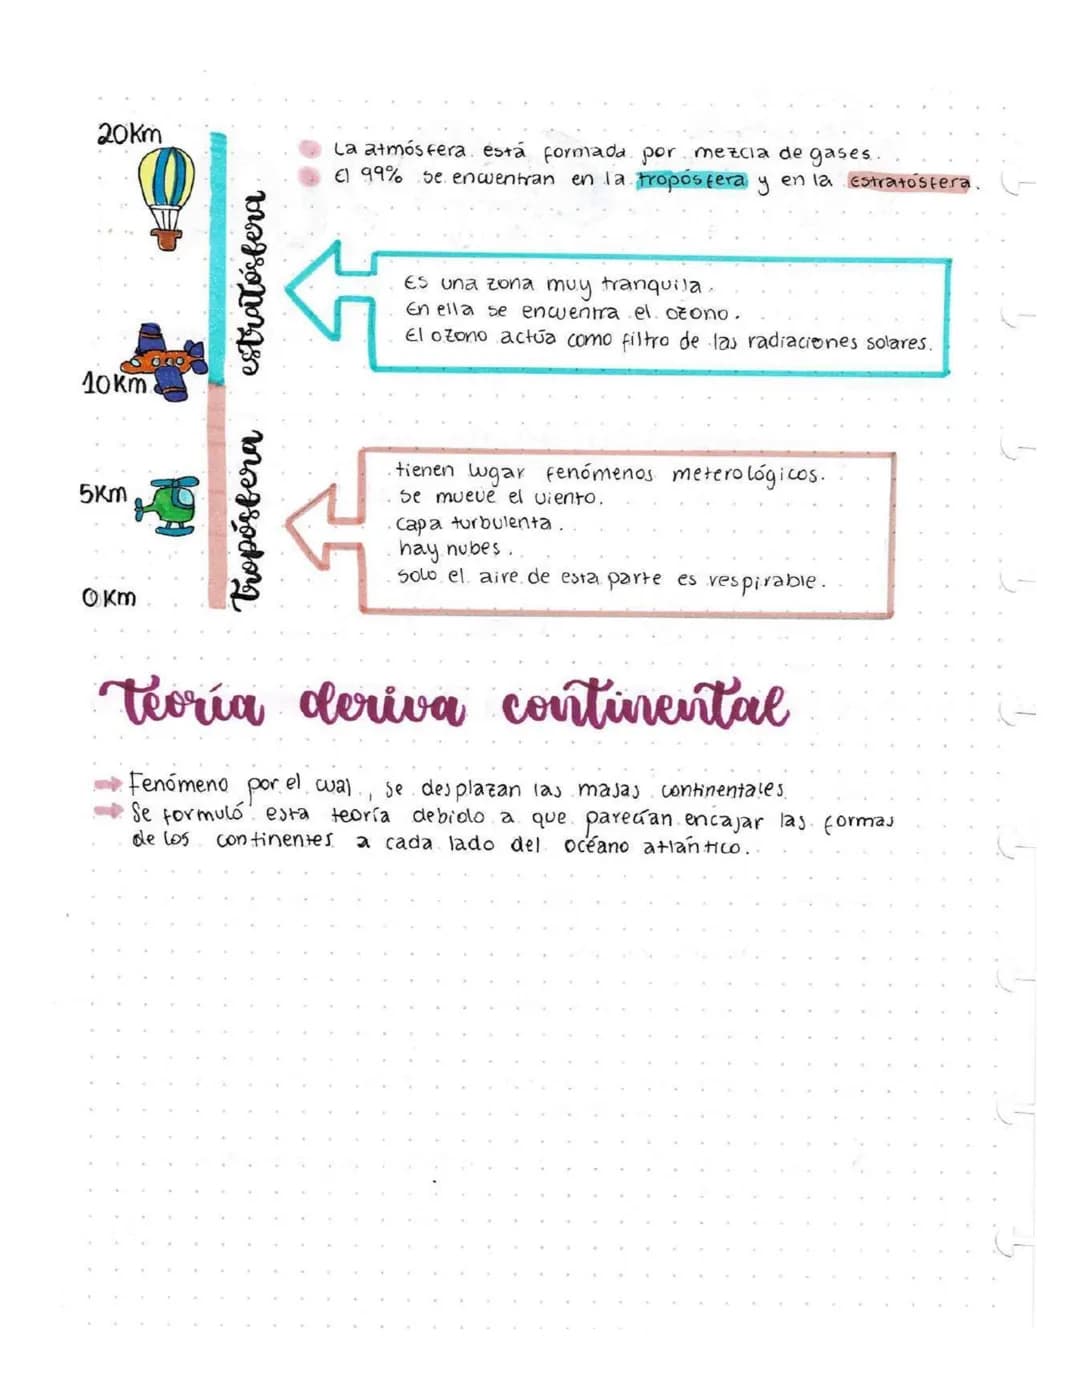 20Km
La atmósfera está formada por mezcla de gases.
El 99% se encuentran en la tropósfera y en la Estratósfera.
estratósfera
Es una zona muy tranquila.
En ella se encuentra el ozono.
El ozono actúa como filtro de las radiaciones solares.
10Km
tropósfera
tienen lugar fenómenos meterológicos.
Se mueve el viento.
5Km
Capa turbulenta.
hay nubes.
Solo el aire de esta parte es respirable.
0Km
Teoría deriva continental
Fenómeno por el cual, se desplazan las masas continentales.
Se formuló esta teoría debido a que parecían encajar las formas
de los continentes a cada lado del océano atlántico.